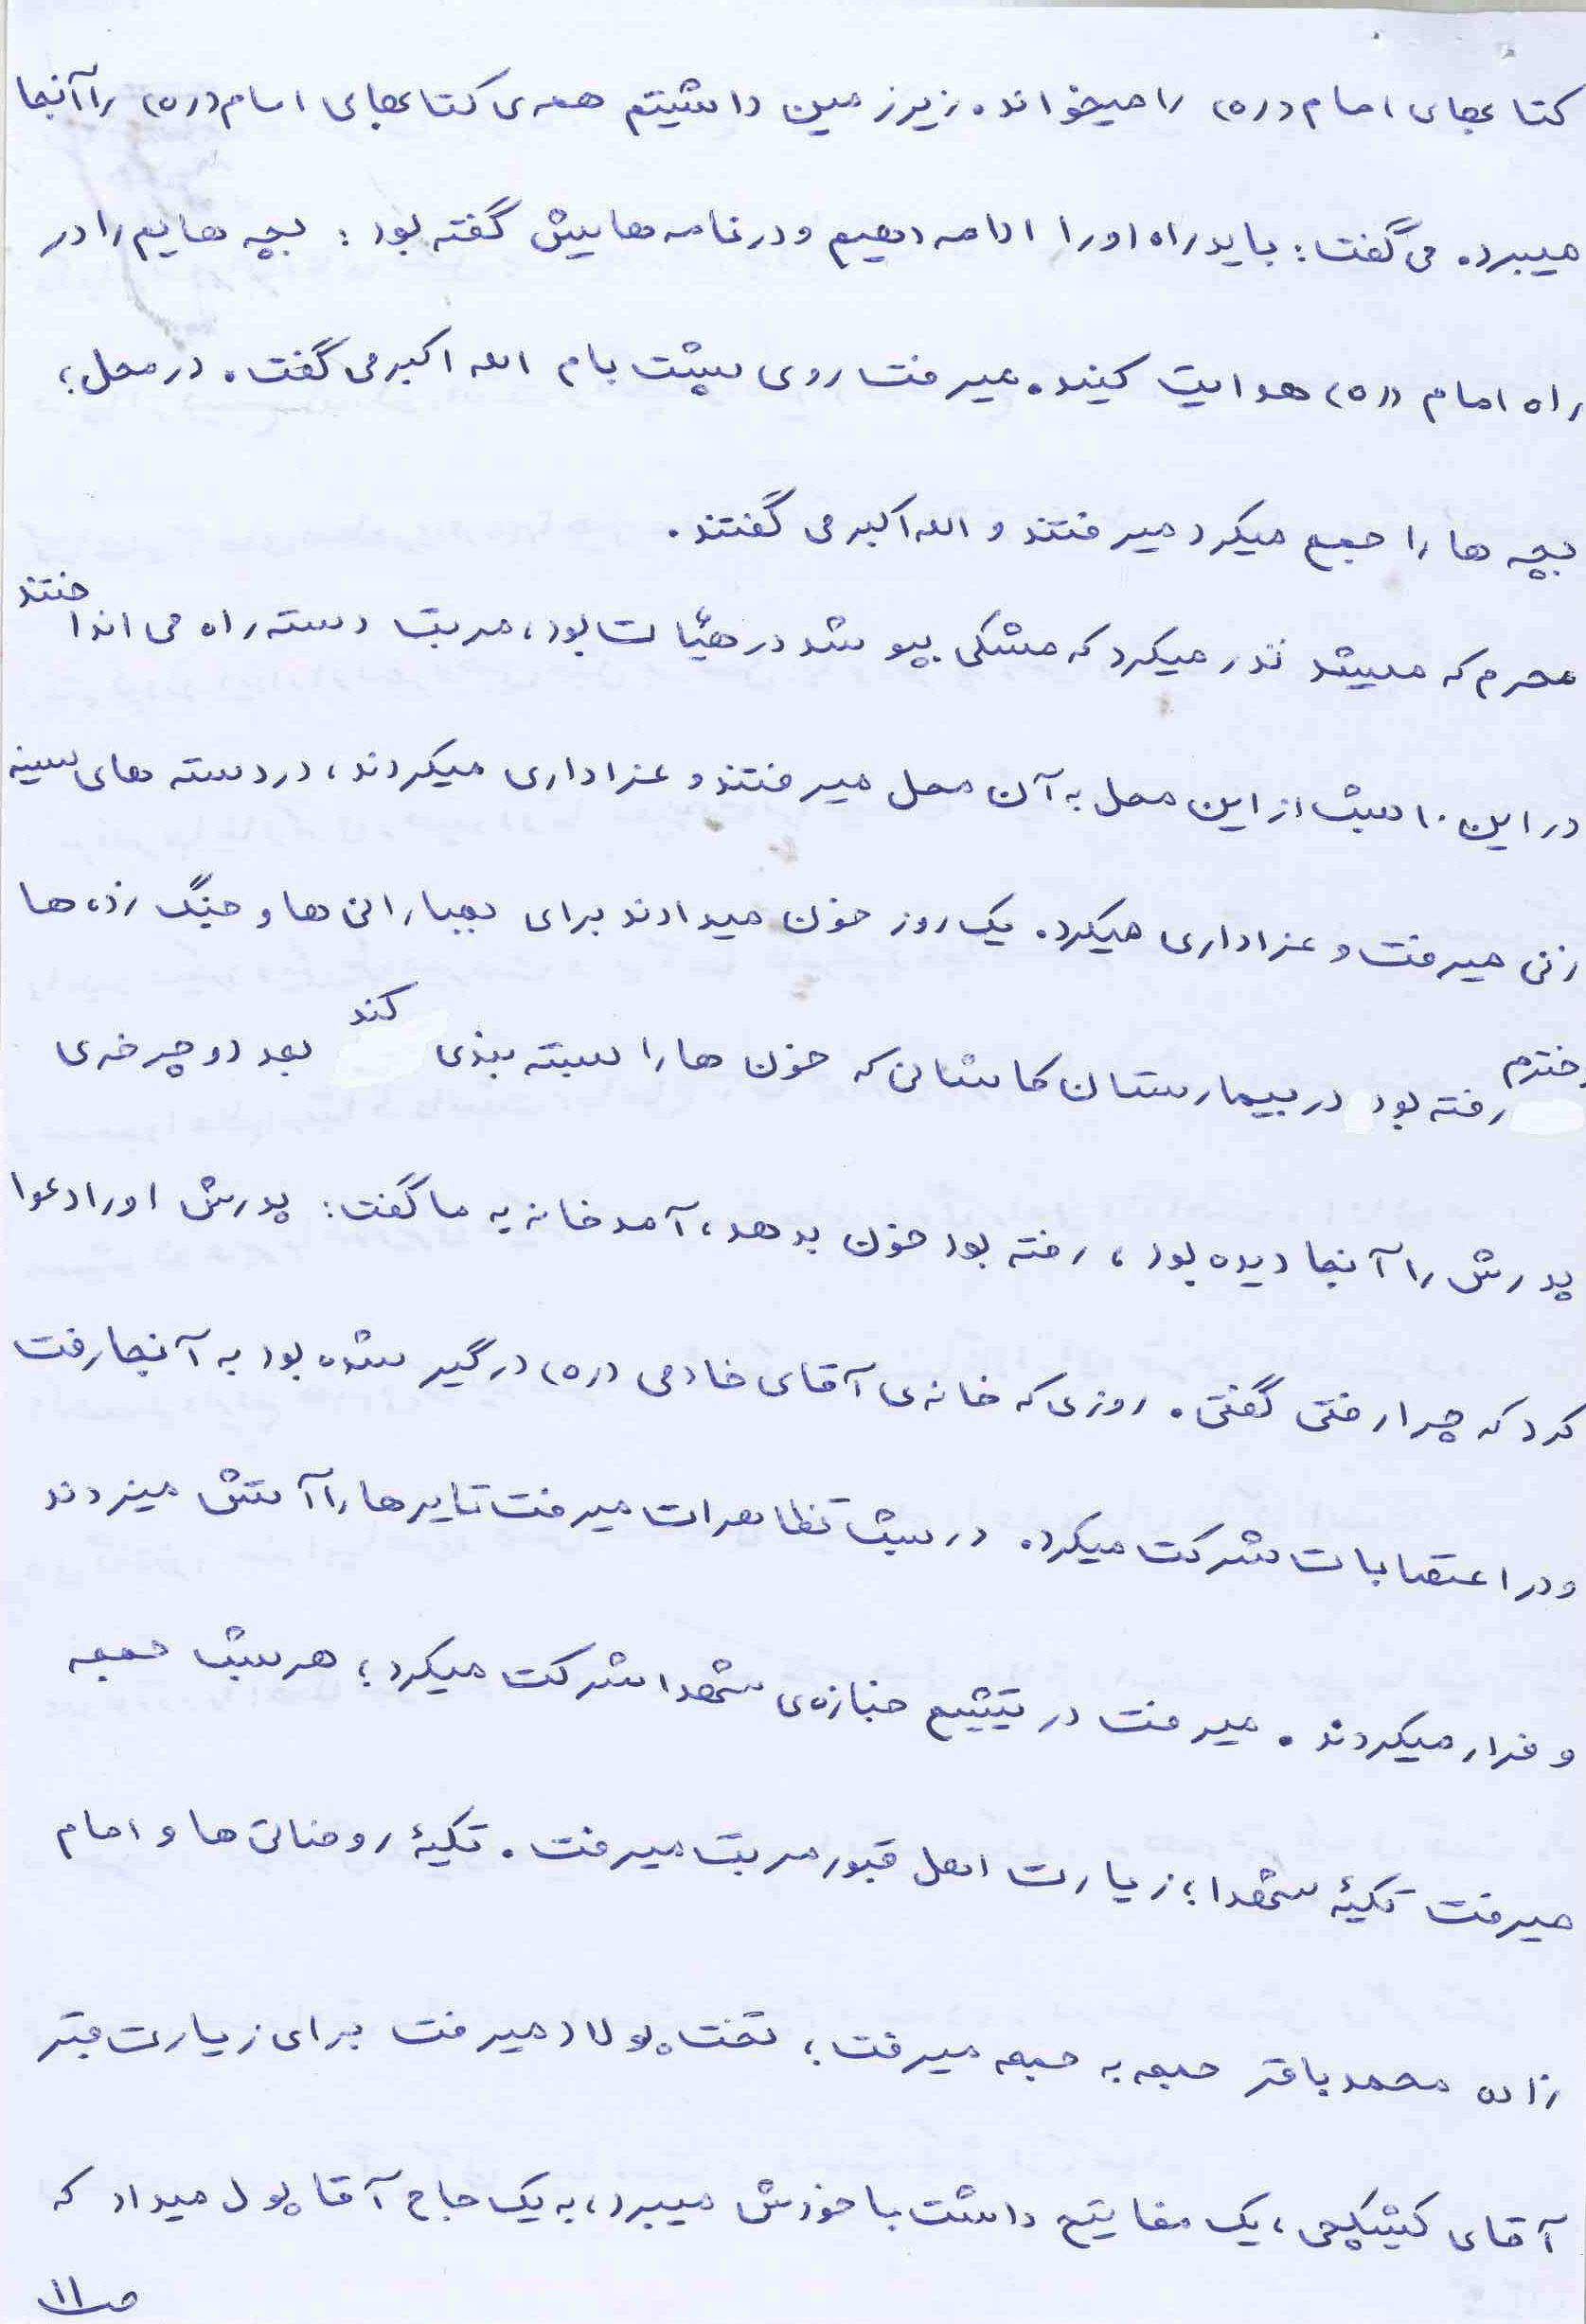 کتابهای امام (ره) را میخواند. زیرزمین داشتیم همه‌ی کتابهای امام (ره) را آنجا
میبرد. می گفت: باید راه او را ادامه دهیم و در نامه هایش گفته بود: بچه هایم را در
راه امام (ره) هدایت کنید. میرفت روی پشت بام الله اکبر می گفت. در محل؛
بچه ها را جمع میکرد میرفتند و الله اکبر می گفتند.
محرم که میشد نذر میکرد که مشکی بپوشد در هیأت بود، مرتب دسته راه می انداختند
در این ۱۰ شب از این محل به آن محل میرفتند و عزاداری میکردند، در دسته های سینه
زنی میرفت و عزاداری میکرد. یک روز خون میدادند برای بمبارانی ها و جنگ زده ها
دخترم رفته بود در بیمارستان کاشانی که خون ها را بسته بندی کند بعد دوچرخه‌ی
پدرش را آنجا دیده بود، رفته بود خون بدهد، آمد خانه به ما گفت: پدرش او را دعوا
کرد که چرا رفتی گفتی. روزی که خانه‌ی آقای خادمی (ره) درگیر شده بود به آنجا رفت
و در اعتصابات شرکت میکرد. در شب تظاهرات میرفت تایرها را آتش میزدند
و فرار میکردند. میرفت در تشییع جنازه‌ی شهدا شرکت میکرد؛ هر شب جمعه
میرفت تکیهٔ شهدا؛ زیارت اهل قبور مرتب میرفت. تکیهٔ روضاتی ها و امام
زاده محمد باقر جمعه به جمعه میرفت؛ تخت پولاد میرفت برای زیارت قبر
آقای کشیکچی، یک مفاتیح داشت با خودش میبرد، به یک حاج آقا پول میداد که
ص۱۱